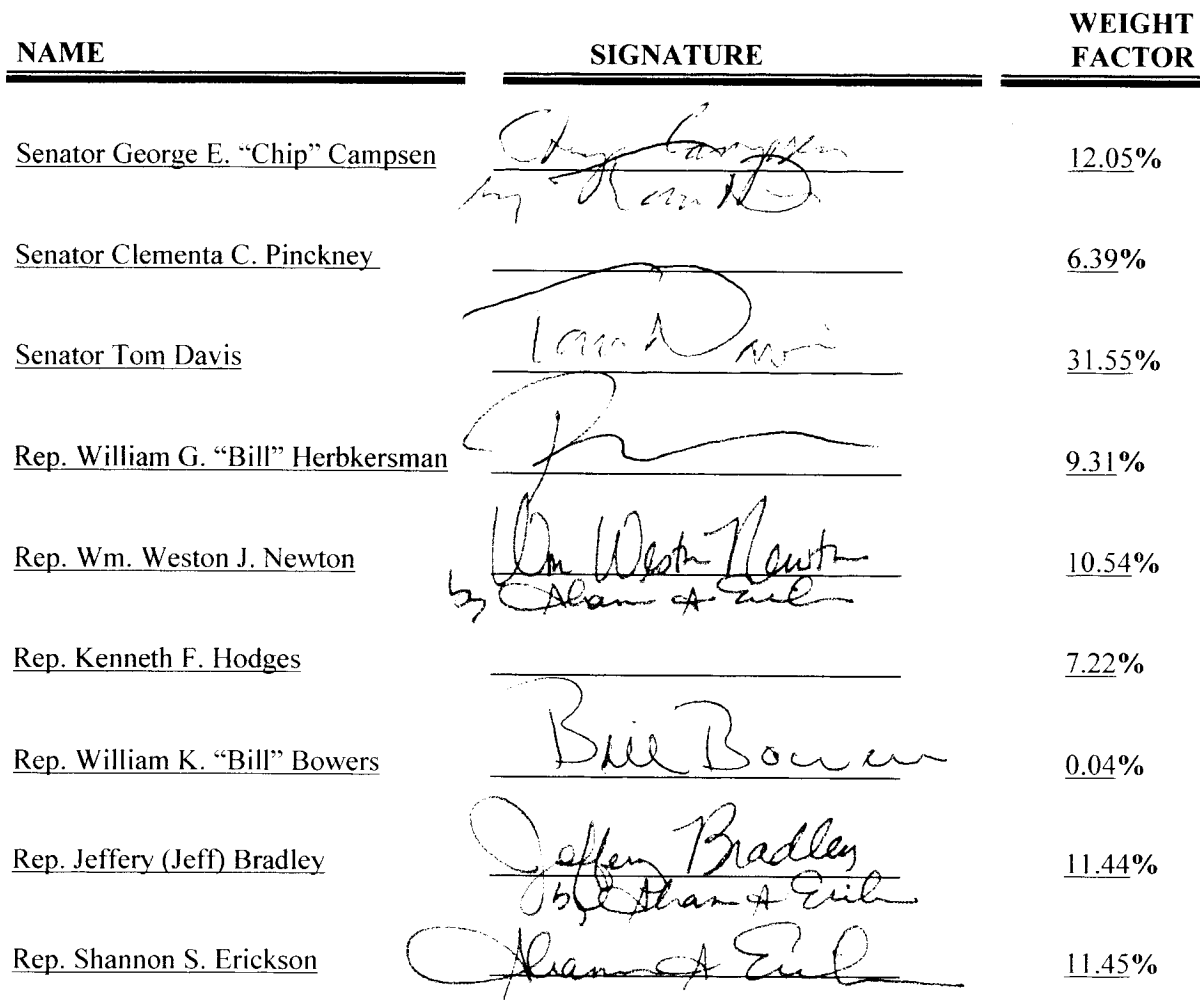 NAME SIGNATURE WEIGHT
FACTOR
Senator George E. “Chip” Campsen Chip Campsen 12.05%
by
Senator Clementa C. Pinckney 6.39%
Senator Tom Davis Tom Davis 31.55%
Rep. William G. “Bill” Herbkersman 9.31%
Rep. Wm. Weston J. Newton Wm Weston Newton 10.54%
by
Rep. Kenneth F. Hodges 7.22%
Rep. William K. “Bill” Bowers Bill Bowers 0.04%
Rep. Jeffery (Jeff) Bradley Jeffery Bradley 11.44%
by
Rep. Shannon S. Erickson 11.45%